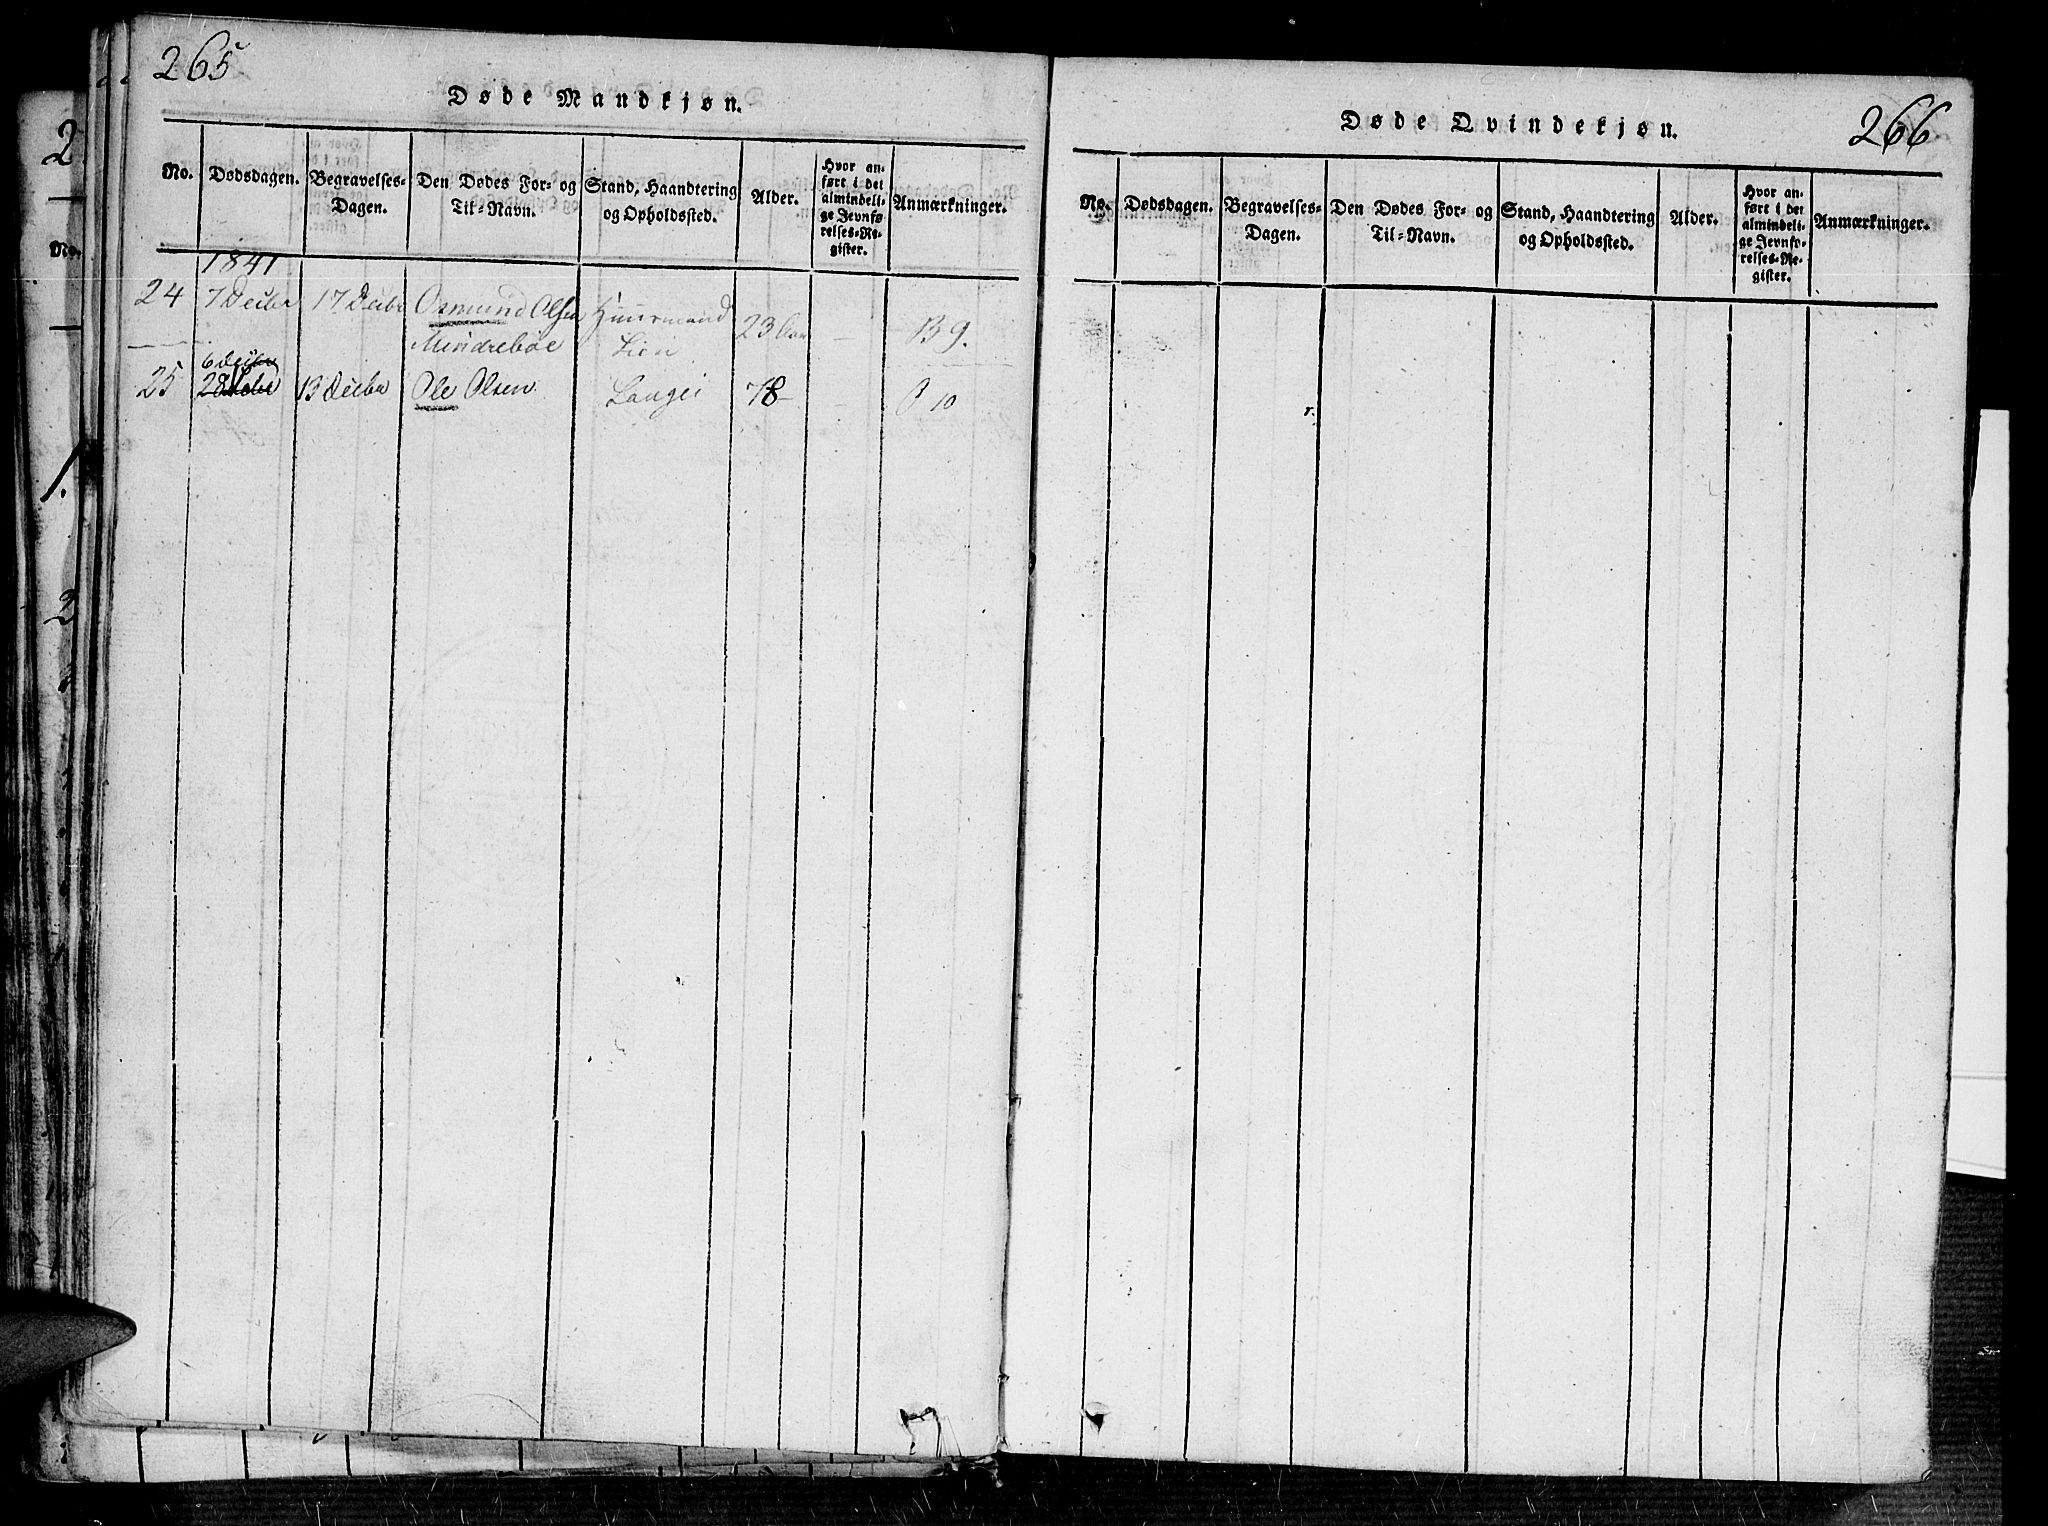 265
Døde Mandkjøn.
No.
Dødsdagen.
Begravelses-
Dagen.
Den Dødes For- og
Til-Navn.
Stand, Haandtering
og Opholdssted.
Alder.
Hvor an-
ført i det
almindeli-
ge Jevnfø-
relses-Re-
gister.
Anmærkninger.
1841
24 7 Decbr 17 Decbr Osmund Olsen Huusmand 23 Aar - B 9.
Mindreboe Lien
6 decbr
25 13 Decbr Ole Olsen Langei 78 - - P 10
266
Døde Qvindekjøn.
No.
Dødsdagen.
Begravelses-
Dagen.
Den Dødes For- og
Til-Navn.
Stand, Haandtering
og Opholdssted.
Alder.
Hvor an-
ført i det
almindeli-
ge Jevnfø-
relses-Re-
gister.
Anmærkninger.
2
No.
1.
2